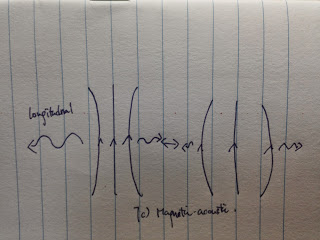 longitudinal
(c) Magneto-acoustic.